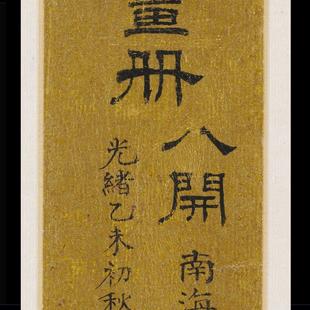 畫册
八開
光緒乙未初秋
南海